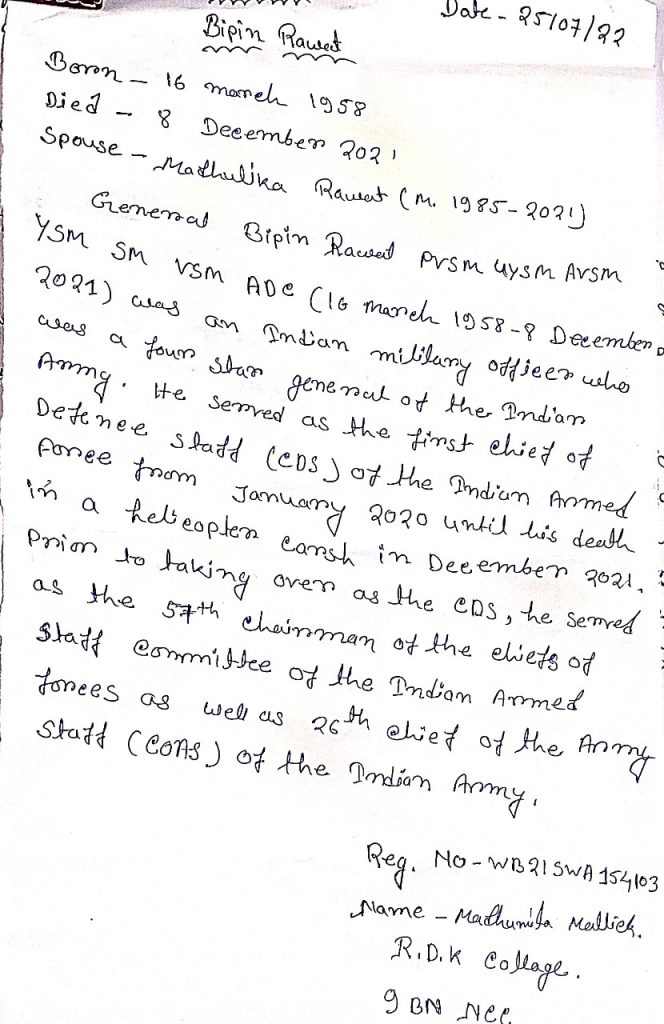 Date - 25/07/22
Bipin Rawat
Born - 16 march 1958
Died - 8 December 2021
Spouse - Madhulika Rawat (m. 1985-2021)
General Bipin Rawat PVSM UYSM AVSM
YSM SM VSM ADC (16 March 1958-8 December
2021) was an Indian military officer who
was a four star general of the Indian
Army. He served as the first chief of
Defence staff (CDS) of the Indian Armed
Force from January 2020 until his death
in a helicopter carsh in December 2021.
Prior to taking over as the CDS, he served
as the 57th chairman of the chiefs of
Staff Committee of the Indian Armed
forces as well as 26th chief of the Army
Staff (COAS) of the Indian Army.
Reg. No - WB21SWA154103
Name - Madhumita Mallick.
R.D.K Collage.
9 BN NCC.